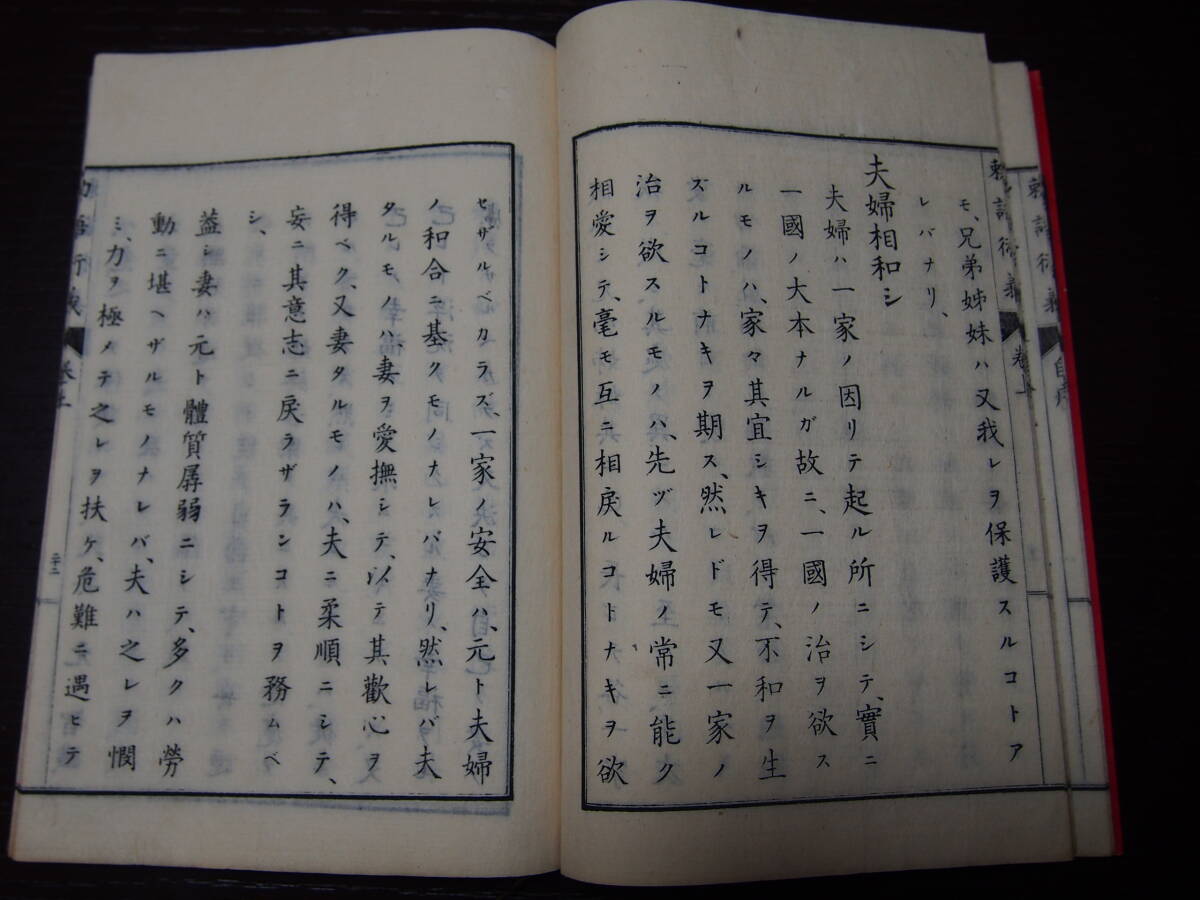 勅語衍義
自序
勅語衍義
巻上
モ、兄弟姊妹ハ又我レヲ保護スルコトア
レバナリ、
夫婦相和シ
夫婦ハ一家ノ因リテ起ル所ニシテ、實ニ
一國ノ大本ナルガ故ニ、一國ノ治ヲ欲ス
ルモノハ、家々其宜シキヲ得テ、不和ヲ生
ズルコトナキヲ期ス、然レドモ又一家ノ
治ヲ欲スルモノハ、先ヅ夫婦ノ常ニ能ク
相愛シテ、毫モ互ニ相戻ルコトナキヲ欲
セザルベカラズ、一家ノ安全ハ、元ト夫婦
ノ和合ニ基クモノナレバナリ、然レバ夫
タルモノハ妻ヲ愛撫シテ、以テ其歡心ヲ
得ベク、又妻タルモノハ、夫ニ柔順ニシテ、
妄ニ其意志ニ戻ラザランコトヲ務ムベ
シ、
葢シ妻ハ元ト體質孱弱ニシテ、多クハ勞
動ニ堪ヘザルモノナレバ、夫ハ之レヲ憫
ミ、力ヲ極メテ之レヲ扶ケ、危難ニ遇ヒテ
衍義
巻上